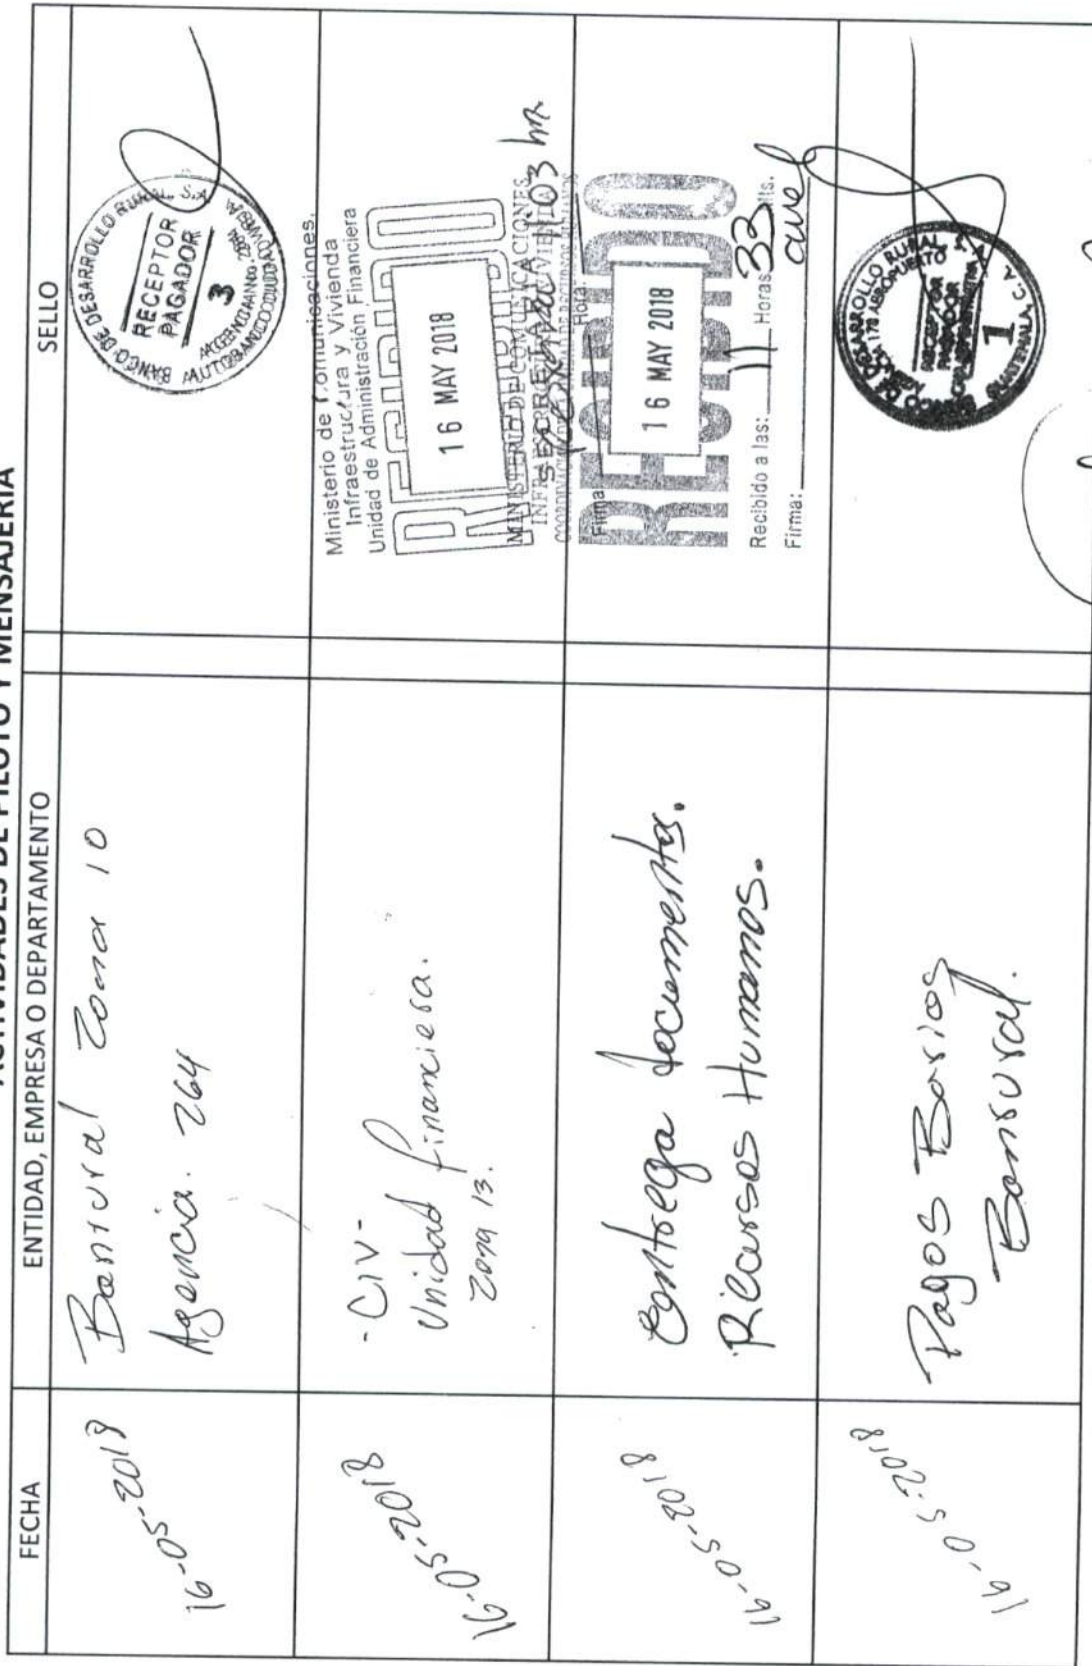 ACTIVIDADES DE PILOTO Y MENSAJERIA
FECHA
ENTIDAD, EMPRESA O DEPARTAMENTO
SELLO
16-05-2018
Banrural Zona 10
Agencia. 264
BANCO DE DESARROLLO RURAL, S.A.
RECEPTOR
PAGADOR
3
16-05-2018
-CIV-
Unidad financiera.
Zona 13.
Ministerio de Comunicaciones,
Infraestructura y Vivienda
Unidad de Administración Financiera
RECIBIDO
16 MAY 2018
Hora: 1103 hr
Firma
16-05-2018
Entrega documentos.
Recursos Humanos.
MINISTERIO DE COMUNICACIONES,
INFRAESTRUCTURA Y VIVIENDA
COORDINACION DE RECURSOS HUMANOS
RECIBIDO
16 MAY 2018
Recibido a las: 11 Horas 33 Mts.
Firma:
16-05-2018
Pagos Barios
Banrural.
DESARROLLO RURAL
178 AEROPUERTO
RECEPTOR
PAGADOR
1
GUATEMALA, C. A.